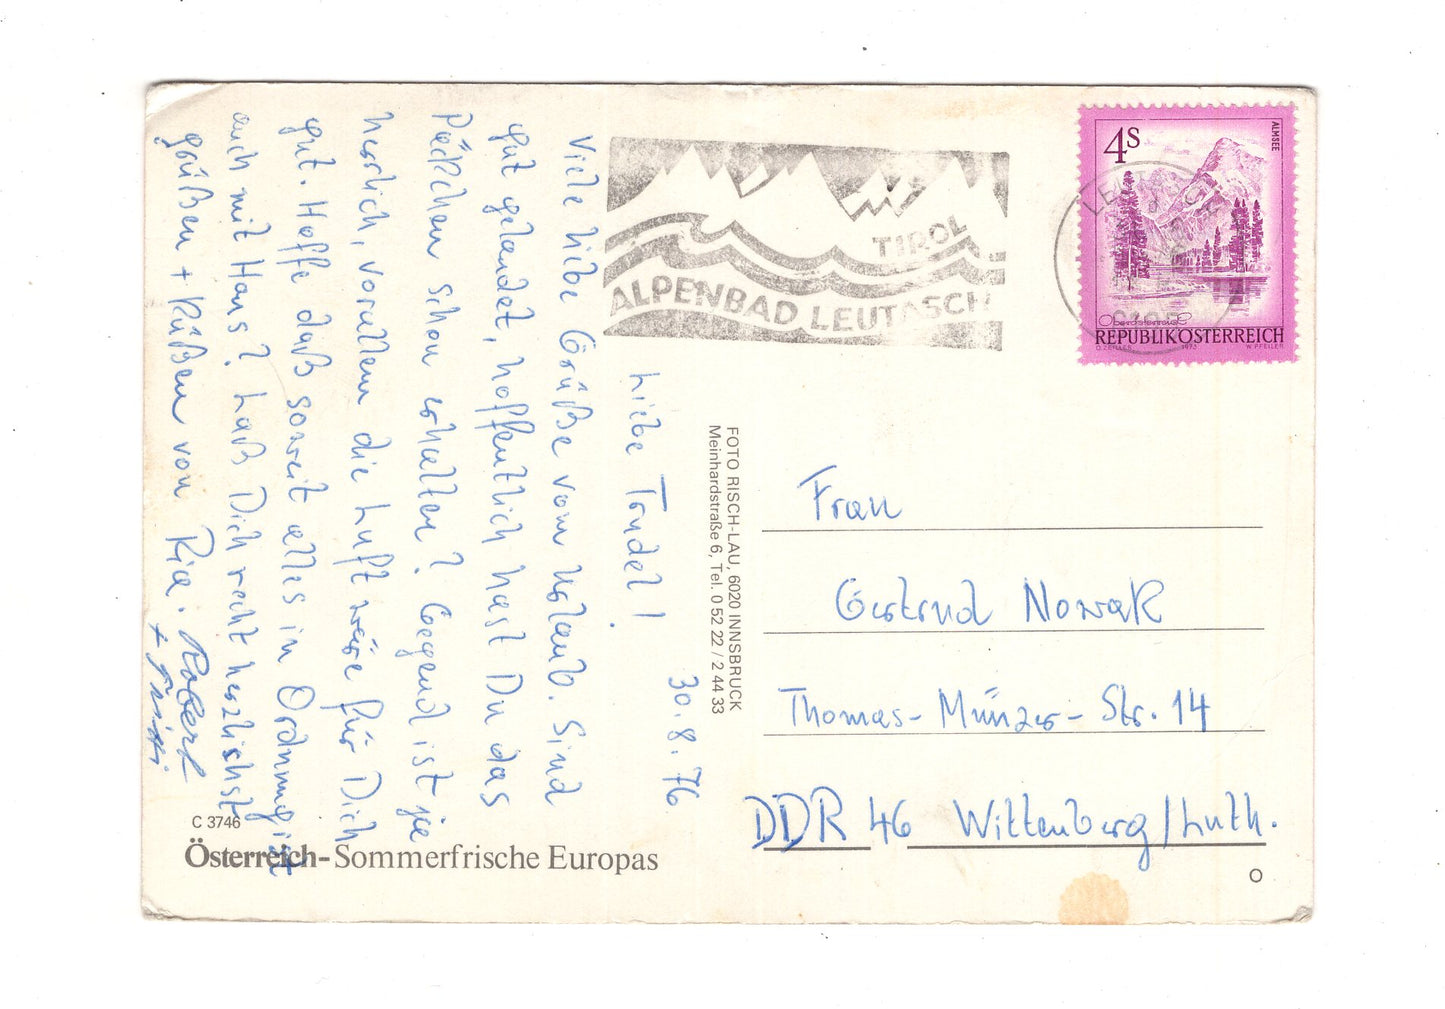 30.8.76
Liebe Trudel!
Viele liebe Grüße vom Urlaub. Sind
gut gelandet, hoffentlich hast Du das
Päckchen schon erhalten? Gegend ist je
herrlich, vorallem die Luft wäre für Dich
gut. Hoffe daß soweit alles in Ordnung ist
auch mit Hans? Laß Dich recht herzlichst
grüßen + küßen von Ria. Robert
+
FOTO RISCH-LAU, 6020 INNSBRUCK
Meinhardstraße 6, Tel. 0 52 22 / 2 44 33
C 3746
Österreich-Sommerfrische Europas
TIROL
ALPENBAD LEUTASCH
4S
ALMSEE
Oberösterreich
REPUBLIK ÖSTERREICH
O. ZEILLER 1973 W. PFEILER
Frau
Gertrud Nowak
Thomas-Münzer-Str. 14
DDR 46 Wittenberg/Luth.
O